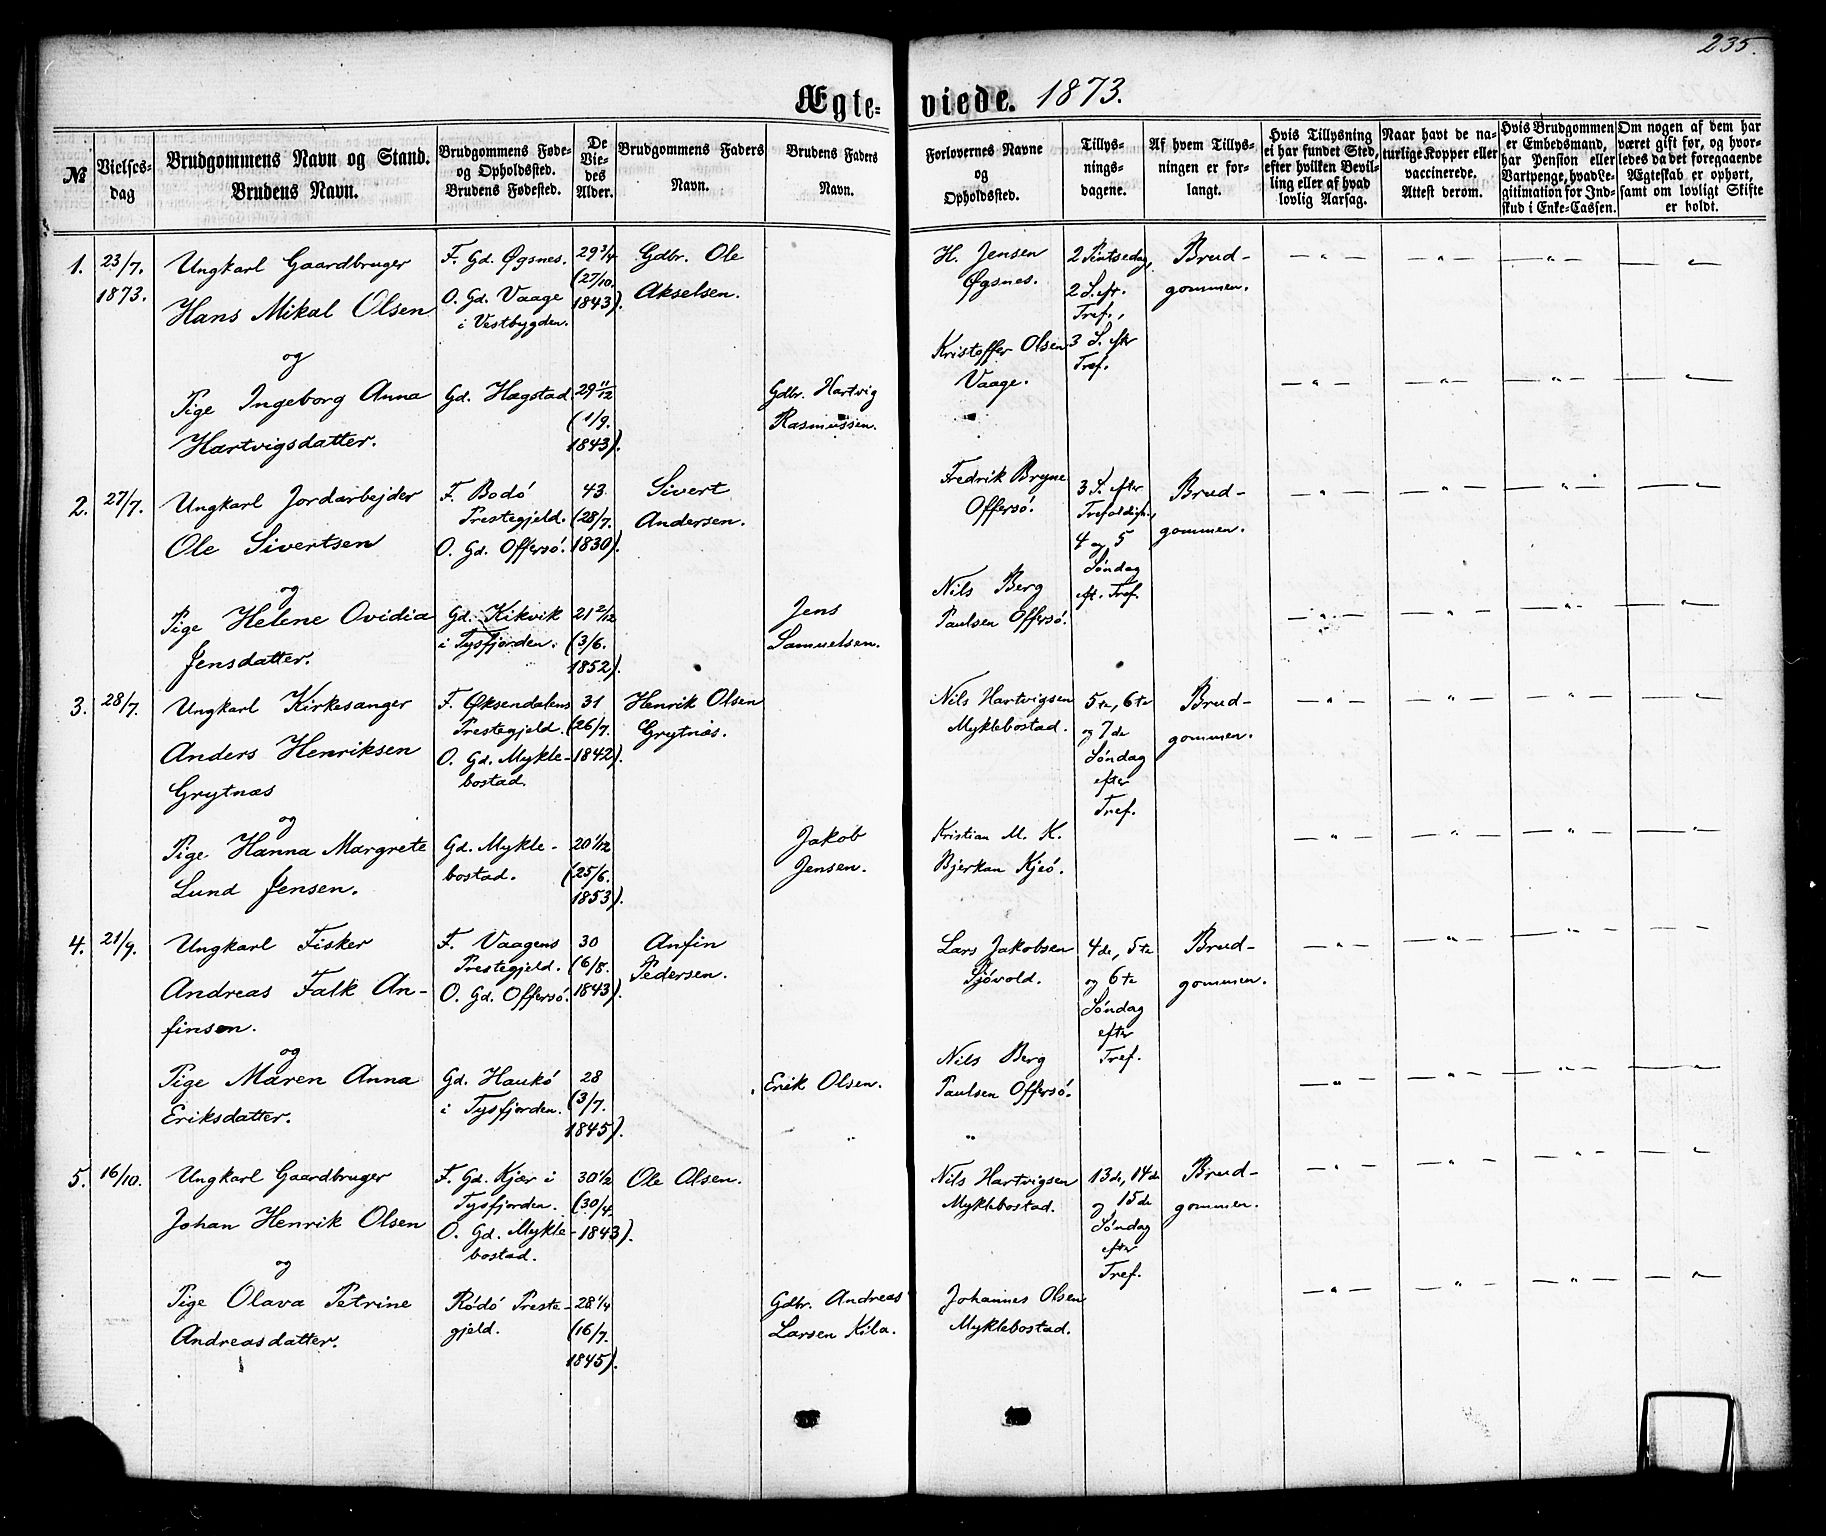 235.
Ægte-
viede. 1873.
№
Vielses-
dag
Brudgommens Navn og Stand.
Brudens Navn.
Brudgommens Føde-
og Opholdssted.
Brudens Fødested.
De
Vie-
des
Alder.
Brudgommens Faders
Navn.
Brudens Faders
Navn.
Forlovernes Navne
og
Opholdssted.
Tillys-
nings-
dagene.
Af hvem Tillys-
ningen er for-
langt.
Hvis Tillysning
ei har fundet Sted,
efter hvilken Bevil-
ling eller af hvad
lovlig Aarsag.
Naar havt de na-
turlige Kopper eller
vaccinerede.
Attest derom.
Hvis Brudgommen
er Embedsmand,
har Pension eller
Vartpenge, hvad Le-
gitimation for Ind-
skud i Enke-Cassen.
Om nogen af dem har
været gift før, og hvor-
ledes da det foregaaende
Ægteskab er ophørt,
samt om lovligt Skifte
er holdt.
1.
23/7.
1873.
Ungkarl Gaardbruger
Hans Mikal Olsen
og
Pige Ingeborg Anna
Hartvigsdatter.
F. Gd. Øgsnes.
O. Gd. Vaage
i Vestbygden.
Gd. Hægstad
29 3/4
(27/10.
1843).
29 11/12
(1/9.
1843).
Gdbr. Ole
Akselsen.
Gdbr. Hartvig
Rasmussen.
H. Jensen
Øgsnes.
Kristoffer Olsen
Vaage.
2 Pintsedag,
2 S. eft.
Tref.,
3 S. eftr
Tref.
Brud-
gommen.
— " — — " — — " — — " —
— " — — " — — " — — " —
2.
27/7.
Ungkarl Jordarbejder
Ole Sivertsen
og
Pige Helene Ovidia
Jensdatter.
F. Bodó
Prestegjeld.
O. Gd. Offersó.
Gd. Kikvik
i Tysfjorden.
43
(28/7.
1830).
21 2/12
(3/6.
1852).
Sivert
Andersen.
Jens
Samuelsen.
Fredrik Bryne
Offersó.
Nils Berg
Paulsen Offersó.
3 S. efter
Trefoldigh.,
4 og 5
Søndag
eft. Tref.
Brud-
gommen.
— " — — " — — " — — " —
— " — — " — — " — — " —
3.
28/7.
Ungkarl Kirkesanger
Anders Henriksen
Grytnæs
og
Pige Hanna Margrete
Lund Jensen.
F. Øksendalens
Prestegjeld.
O. Gd. Mykle-
bostad.
Gd. Mykle-
bostad.
31
(26/7.
1842).
20 1/12
(25/6.
1853).
Henrik Olsen
Grytnæs.
Jakob
Jensen.
Nils Hartvigsen
Myklebostad.
Kristian M. K.
Bjerkan Kjeó.
5te, 6te
og 7de
Søndag
efter
Tref.
Brud-
gommen.
— " — — " — — " — — " —
— " — — " — — " — — " —
4.
21/9.
Ungkarl Fisker
Andreas Falk An-
finsen.
og
Pige Maren Anna
Eriksdatter.
F. Vaagens
Prestegjeld.
O. Gd. Offersó.
Gd. Haukó
i Tysfjorden.
30
(6/8.
1843).
28
(3/7.
1845).
Anfin
Pedersen.
Erik Olsen.
Lars Jakobsen
Sjóvold.
Nils Berg
Paulsen Offersó.
4de, 5te
og 6te
Søndag
efter
Tref.
Brud-
gommen.
— " — — " — — " — — " —
— " — — " — — " — — " —
5.
16/10.
Ungkarl Gaardbruger
Johan Henrik Olsen
og
Pige Olava Petrine
Andreasdatter.
F. Gd. Kjær i
Tysfjorden.
O. Gd. Mykle-
bostad.
Ródó Preste-
gjeld.
30 1/2
(30/4.
1843).
28 1/4
(16/7.
1845).
Ole Olsen.
Gdbr. Andreas
Larsen Kila.
Nils Hartvigsen
Myklebostad.
Johannes Olsen
Myklebostad.
13de, 14de
og 15de
Søndag
efter
Tref.
Brud-
gommen.
— " — — " — — " — — " —
— " — — " — — " — — " —